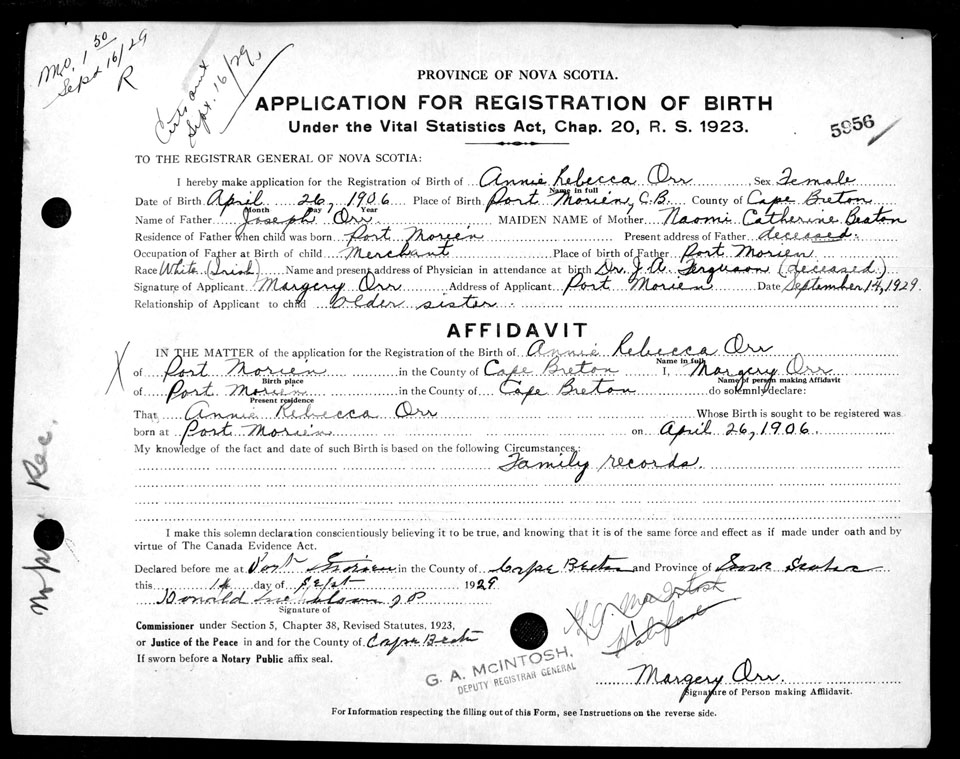 M.O. 1 50
Sept 16/29
R
Certs out
Sept. 16/29
PROVINCE OF NOVA SCOTIA.
APPLICATION FOR REGISTRATION OF BIRTH
Under the Vital Statistics Act, Chap. 20, R. S. 1923.
5956
TO THE REGISTRAR GENERAL OF NOVA SCOTIA:
I hereby make application for the Registration of Birth of Annie Rebecca Orr Sex Female
Name in full
Date of Birth April 26, 1906 Place of Birth Port Morien, C.B. County of Cape Breton
Month Day Year
Name of Father Joseph Orr MAIDEN NAME of Mother Naomi Catherine Beaton
Residence of Father when child was born Port Morien Present address of Father deceased.
Occupation of Father at Birth of child Merchant Place of birth of Father Port Morien
Race White (Irish) Name and present address of Physician in attendance at birth Dr. J. A. Ferguson (deceased)
Signature of Applicant Margery Orr Address of Applicant Port Morien Date September 14, 1929.
Relationship of Applicant to child older sister
AFFIDAVIT
X
IN THE MATTER of the application for the Registration of the Birth of Annie Rebecca Orr
Name in full
of Port Morien in the County of Cape Breton I, Margery Orr
Birth place Name of person making Affidavit
of Port Morien in the County of Cape Breton do solemnly declare:
Present residence
That Annie Rebecca Orr Whose Birth is sought to be registered was
born at Port Morien on April 26, 1906.
My knowledge of the fact and date of such Birth is based on the following Circumstances:
Family records.
I make this solemn declaration conscientiously believing it to be true, and knowing that it is of the same force and effect as if made under oath and by
virtue of The Canada Evidence Act.
Declared before me at Port Morien in the County of Cape Breton and Province of Nova Scotia
this 14 day of Sept 1929
Donald J.P.
Signature of
Commissioner under Section 5, Chapter 38, Revised Statutes, 1923,
or Justice of the Peace in and for the County of Cape Breton
If sworn before a Notary Public affix seal.
G. A. McIntosh
Halifax
G. A. McINTOSH,
DEPUTY REGISTRAR GENERAL
Margery Orr
Signature of Person making Affiidavit.
For Information respecting the filling out of this Form, see Instructions on the reverse side.
Rec.